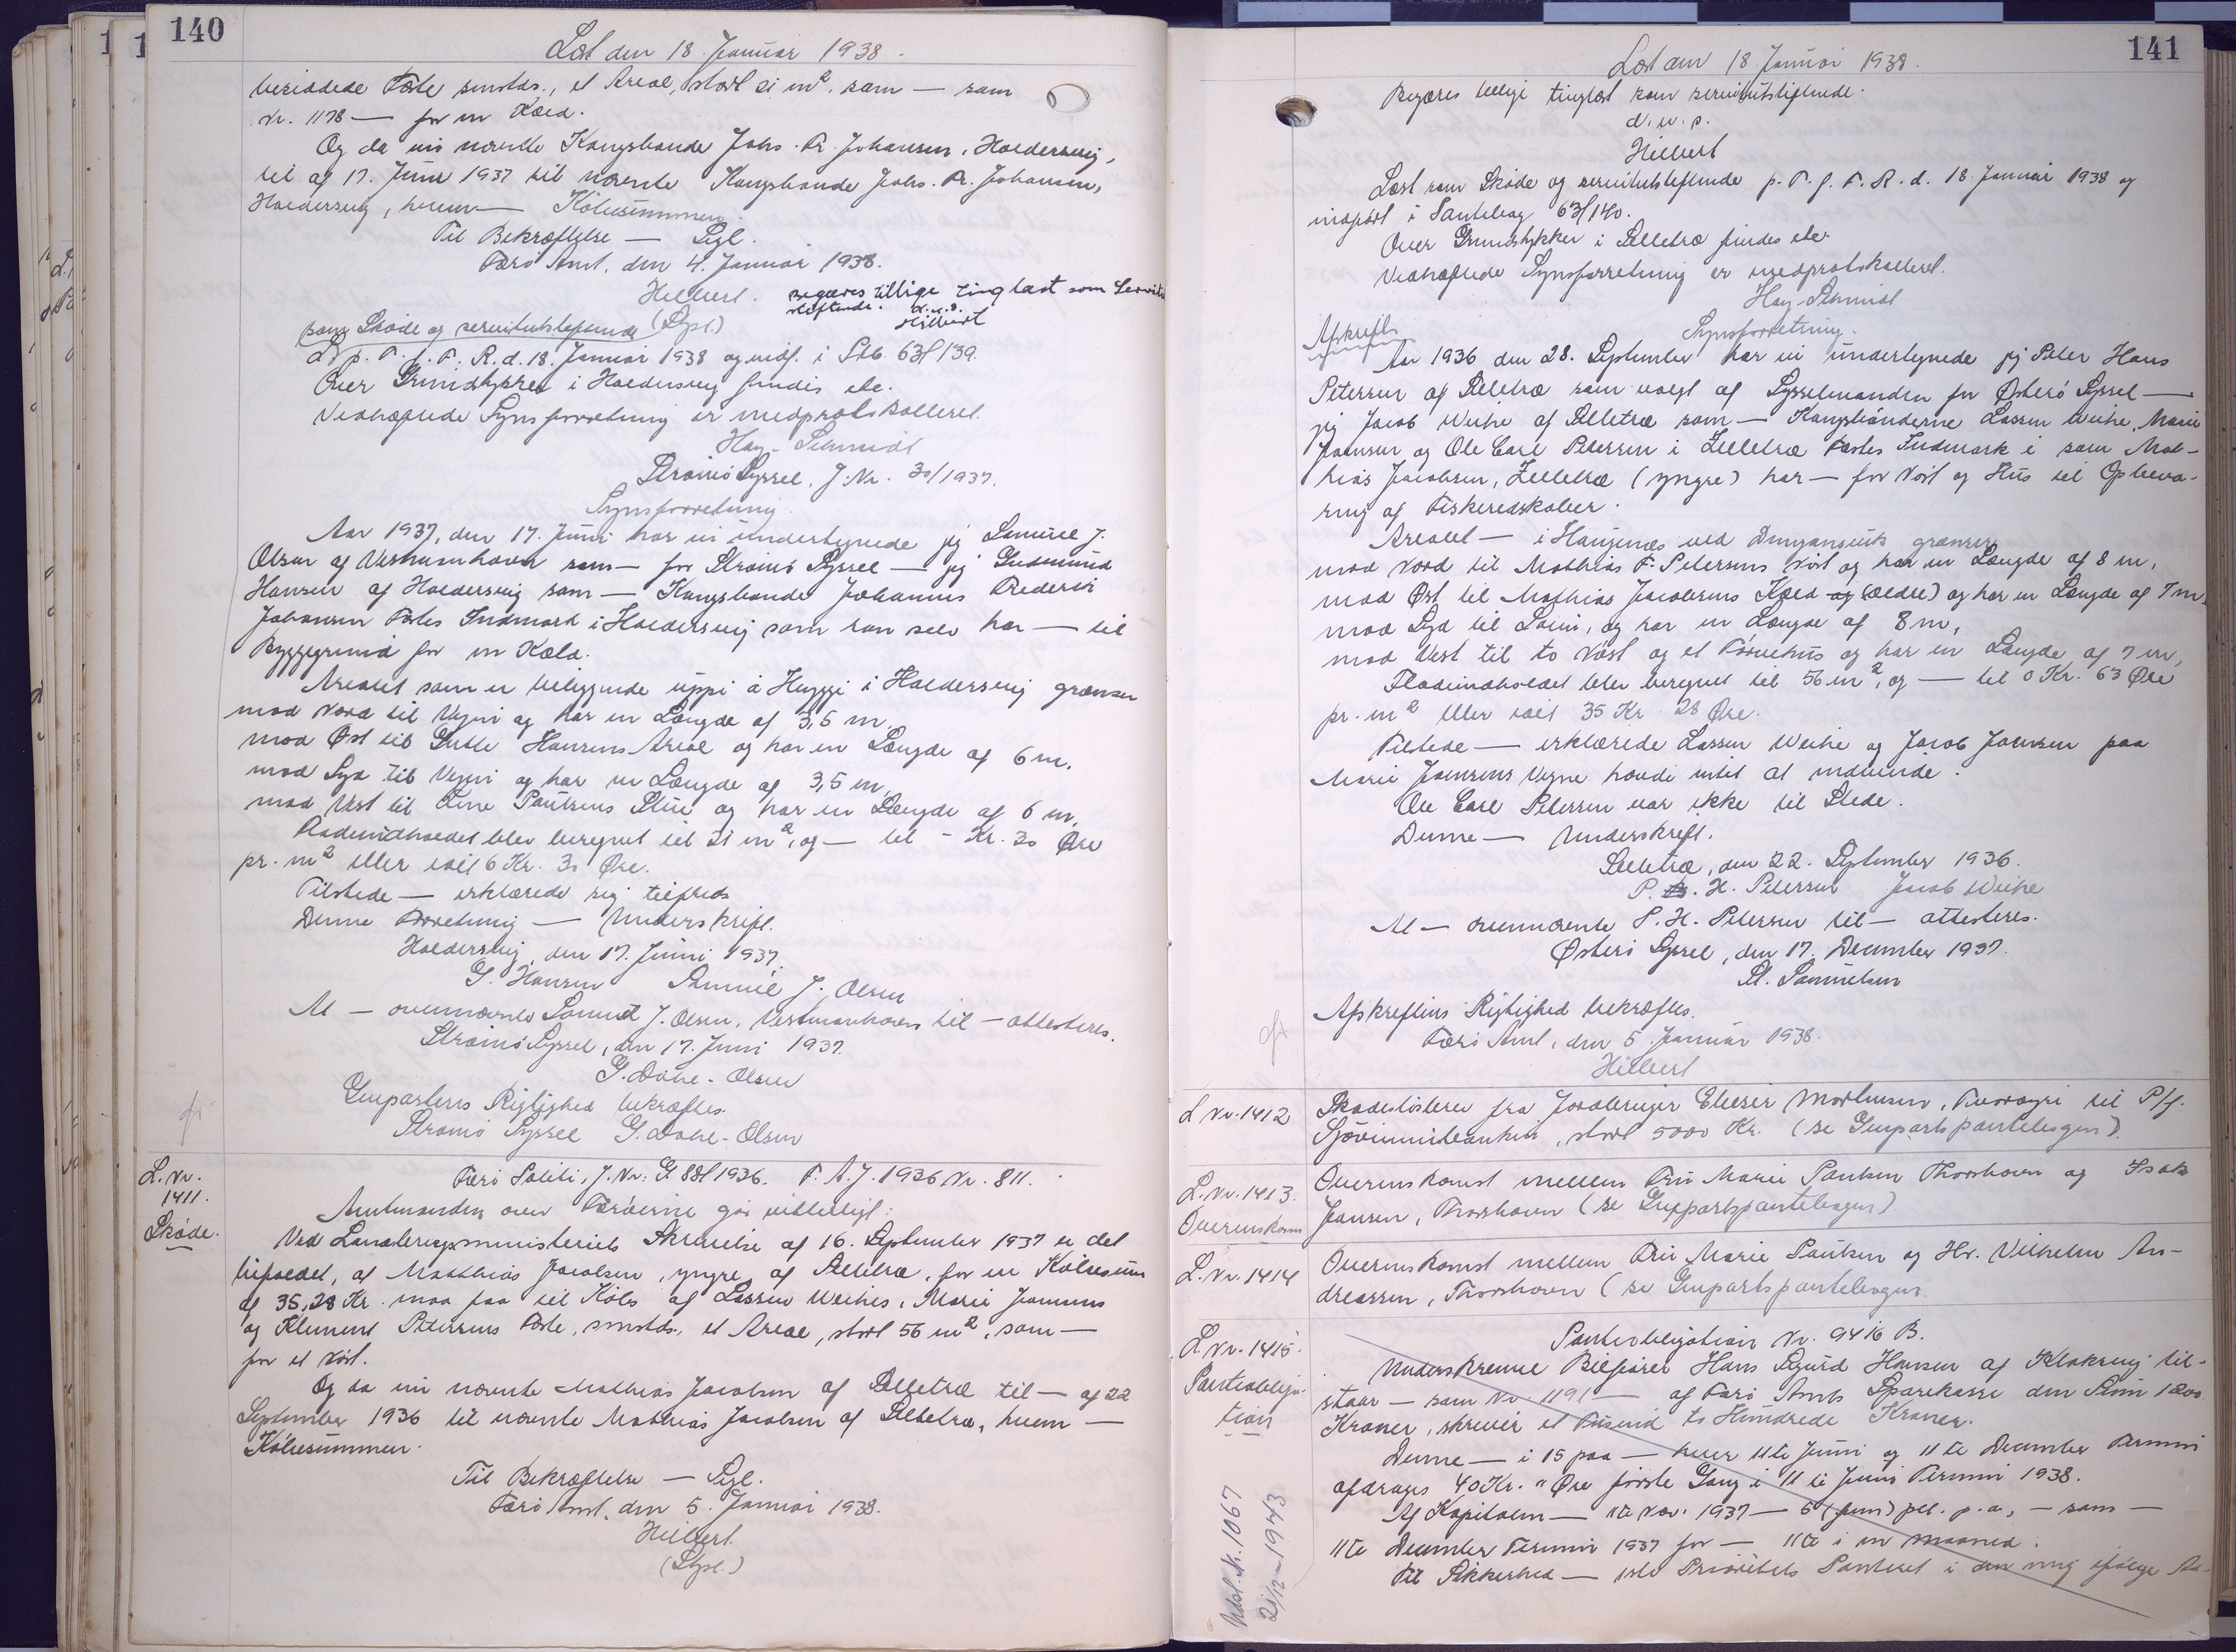 140
Læst den 18. Januar 1938.
besiddede Fæste smstds., et Areal, stort 21 m². som — som
Nr. 1178 — for en Kæld.
Og da nu nævnte Kongsbonde Johs. Fr. Johansen, Haldersvig,
til af 17. Juni 1937 til nævnte Kongsbonde Johs. Fr. Johansen,
Haldersvig, hvem — Købesummen.
Til Bekræftelse — Segl.
Færø Amt, den 4. Januar 1938.
Hilbert. Begæres tillige tinglæst som Servitut-
stiftende. d.u.s.
(Sgl.) Hilbert
som Skøde og servitutstiftende
L. p. T. f. F. R. d. 18. Januar 1938 og indf. i Ptb. 63f 139.
Over Grundstykker i Haldersvig findes etc.
Vedhæftede Synsforretning er medprotokolleret.
Hay-Schmidt
Strømø Syssel, J. Nr. 30/1937.
Synsforretning.
Aar 1937, den 17. Juni har vi undertegnede jeg Samuel J.
Olsen af Vestmanhavn som — for Strømø Syssel — jeg Gudmund
Hansen af Haldersvig som — Kongsbonde Johannes Frederik
Johansen Fæstes Indmark i Haldersvig som han selv har — til
Byggegrund for en Kæld.
Arealet som er beliggende uppi á Huggi i Haldersvig grænser
mod Nord til Vejen og har en Længde af 3,5 m.
mod Øst til Gutte Hansens Areal og har en Længde af 6 m.
mod Syd til Vejen og har en Længde af 3,5 m.
mod Vest til Line Poulsens Stue og har en Længde af 6 m.
Fladeindholdet blev beregnet til 21 m², og — til - Kr. 30 Øre
pr. m² eller ialt 6 Kr. 30 Øre.
Tilstede — erklærede sig tilfreds
Denne Forretning — Underskrift.
Haldersvig, den 17. Juni 1937.
G. Hansen Samuel J. Olsen
At — ovennævnte Samuel J. Olsen, Vestmanhavn til — attesteres.
Strømø Syssel, den 17. Juni 1937.
G. Dahl-Olsen
Genpartens Rigtighed bekræftes.
Strømø Syssel G. Dahl-Olsen
L. Nr.
1411.
Skøde.
Færø Politi, J. Nr. G 88f 1936. F. A. J. 1936 Nr. 811.
Amtmanden over Færøerne gør vitterligt:
Ved Landbrugsministeriets Skrivelse af 16. September 1937 er det
bifaldet, at Matthias Jacobsen, yngre, af Selletræ, for en Købesum
af 35,28 Kr. maa faa til Købs af Lassen Weihes, Marie Joensens
og Klement Petersens Fæste, smstds., et Areal, stort 56 m², som —
for et Nöst.
Og da nu nævnte Mathias Jacobsen af Selletræ til — af 22
September 1936 til nævnte Mathias Jacobsen af Selletræ, hvem —
Købesummen.
Til Bekræftelse — Segl.
Færø Amt, den 5. Januar 1938.
Hilbert.
(Sgl.)
141
Læst den 18. Januar 1938.
Begæres tillige tinglæst som servitutstiftende.
d. u. s.
Hilbert
Læst som Skøde og servitutstiftende p. T. f. F. R. d. 18. Januar 1938 og
indført i Pantebog 63f 140.
Over Grundstykker i Selletræ findes etc.
Vedhæftede Synsforretning er medprotokolleret.
Hay-Schmidt
Afskrift.
Synsforretning.
Aar 1936 den 28. September har vi undertegnede jeg Peter Hans
Petersen af Selletræ som valgt af Sysselmanden for Østerø Syssel —
jeg Jacob Weihe af Selletræ som — Kongsbønderne Lassen Weihe, Marie
Joensen og Ole Carl Petersen i Zelletræ Fæstes Indmark i som Mat-
hias Jacobsen, Zelletræ (yngre) har — for Nöst og Hus til Opbeva-
ring af Fiskeredskaber.
Arealet — i Haugenæs ved grænser
mod Nord til Mathias F. Petersens Nöst og har en Længde af 8 m,
mod Øst til Mathias Jacobsens Kæld og (ældre) og har en Længde af 7 m.
mod Syd til Søen, og har en Længde af 8 m,
mod Vest til to Nöst og et Tørvehus og har en Længde af 7 m,
Fladeindholdet blev beregnet til 56 m², og — til 0 Kr. 63 Øre
pr. m² eller ialt 35 Kr 28 Øre.
Tilstede — erklærede Lassen Weihe og Jacob Joensen paa
Marie Joensens Vegne havde intet at indvende.
Ole Carl Petersen var ikke til Stede.
Denne — Underskrift.
Selletræ, den 22. September 1936.
P. H. Petersen Jacob Weihe
At — ovennævnte P. H. Petersen til — attesteres.
Østerø Syssel, den 17. December 1937.
St. Samuelsen
Afskriftens Rigtighed bekræftes.
Færø Amt, den 5. Januar 1938.
Hilbert
L Nr. 1412
Skadesløsbrev fra Jordbruger Elieser Mortensen, Tvøroyri til P/f.
Sjóvinnubankin, stort 5000 Kr. (se Genpartspantebogen).
L. Nr. 1413.
Overenskomst
Overenskomst mellem Fru Marie Poulsen Thorshavn og Isak
Jensen, Thorshavn (se Genpartspantebogen)
L. Nr. 1414
Overenskomst mellem Fru Marie Poulsen og Hr. Vilhelm An-
dreassen, Thorshavn (se Genpartspantebogen.
L. Nr. 1415.
Pantobliga-
tion
Pantobligation Nr. 9416 B.
Underskrevne Bilfører Hans Sigurd Hansen af Klaksvig til-
staar — som Nr 1191 — af Færø Amts Sparekasse den Sum 1200
Kroner, skriver et Tusind to Hundrede Kroner.
Denne — i 15 paa — hver 11te Juni og 11te December Termin
afdrages 40 Kr. " Øre første Gang i 11te Juni Termin 1938.
Af Kapitalen — 11te Nov. 1937 — 5 (fem) pct. p. a., — som —
11te December Termin 1937 for — 11te i en Maaned.
Til Sikkerhed — 1ste Prioritets Panteret i den mig ifølge
Udsl. N. 1067
21/12-1943